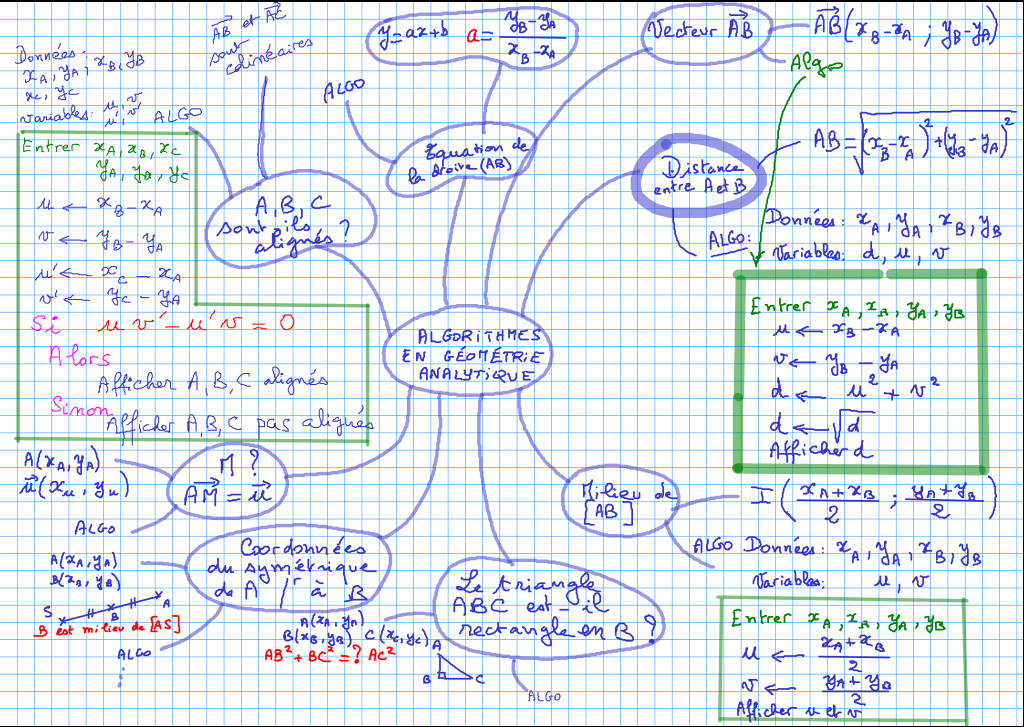 ALGORITHMES
EN GÉOMÉTRIE
ANALYTIQUE
Vecteur AB→
AB→(x_B-x_A ; y_B-y_A)
Algo
Distance
entre A et B
AB = √((x_B-x_A)²+(y_B-y_A)²)
ALGO:
Données: x_A, y_A, x_B, y_B
Variables: d, u, v
Entrer x_A, x_B, y_A, y_B
u ← x_B-x_A
v ← y_B-y_A
d ← u² + v²
d ← √d
Afficher d
Milieu de
[AB]
I((x_A+x_B)/2 ; (y_A+y_B)/2)
ALGO Données: x_A, y_A, x_B, y_B
Variables: u, v
Entrer x_A, x_B, y_A, y_B
u ← (x_A+x_B)/2
v ← (y_A+y_B)/2
Afficher u et v
Le triangle
ABC est-il
rectangle en B ?
A(x_A, y_A)
B(x_B, y_B) C(x_C, y_C)
AB²+BC²=? AC²
A
B C
ALGO
Coordonnées
du symétrique
de A /r à B
A(x_A, y_A)
B(x_B, y_B)
S B A
B est milieu de [AS]
ALGO
M ?
AM→ = u→
A(x_A, y_A)
u→(x_u, y_u)
ALGO
A, B, C
sont-ils
alignés ?
AB→ et AC→
sont
colinéaires
Données:
x_A, y_A, x_B, y_B
x_C, y_C
Variables: u, v
u', v'
ALGO
Entrer x_A, x_B, x_C
y_A, y_B, y_C
u ← x_B-x_A
v ← y_B-y_A
u' ← x_C-x_A
v' ← y_C-y_A
Si u v'-u'v = 0
Alors
Afficher A,B,C alignés
Sinon
Afficher A,B,C pas alignés
Equation de
la droite (AB)
y=ax+b a=(y_B-y_A)/(x_B-x_A)
ALGO